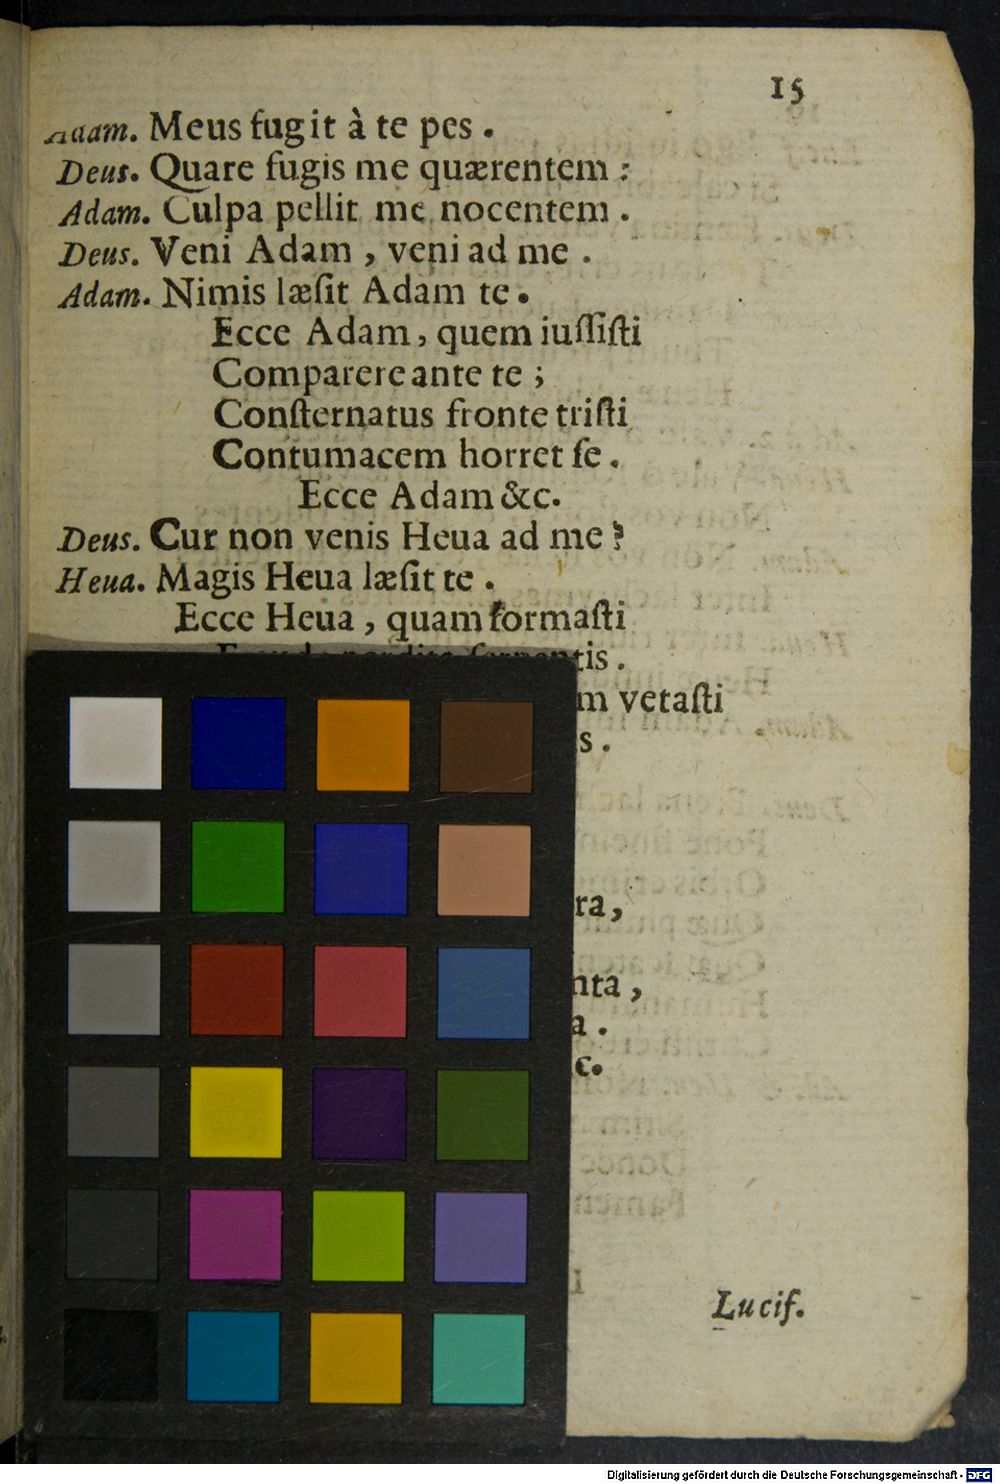 15
Adam. Meus fugit à te pes .
Deus. Quare fugis me quærentem :
Adam. Culpa pellit me nocentem .
Deus. Veni Adam , veni ad me .
Adam. Nimis læſit Adam te .
Ecce Adam , quem iuſſiſti
Comparere ante te ;
Conſternatus fronte triſti
Contumacem horret ſe .
Ecce Adam &c.
Deus. Cur non venis Heua ad me ?
Heua. Magis Heua læſit te .
Ecce Heua , quam formaſti
tis .
m vetaſti
s .
ra ,
nta ,
a .
c.
Lucif.
Digitalisierung gefördert durch die Deutsche Forschungsgemeinschaft - DFG